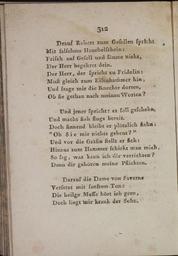 312
Drauf Robert zum Gesellen spricht
Mit falschem Heuchelscheine:
Frisch auf Gesell und säume nicht,
Der Herr begehret dein.
Der Herr, der spricht zu Fridolin:
Mußt gleich zum Eisenhammer hin,
Und frage mir die Knechte dorten,
Ob sie gethan nach meinen Worten?
Und jener spricht: es soll geschehn,
Und macht sich flugs bereit.
Doch sinnend bleibt er plötzlich stehn:
"Ob Sie mir nichts gebeut?"
Und vor die Gräfin stellt er sich:
Hinaus zum Hammer schickt man mich,
So sag, was kann ich dir verrichten?
Denn dir gehören meine Pflichten.
Darauf die Dame von Saverne
Versetzt mit sanftem Ton:
Die heilge Messe hört ich gern,
Doch liegt mir krank der Sohn.